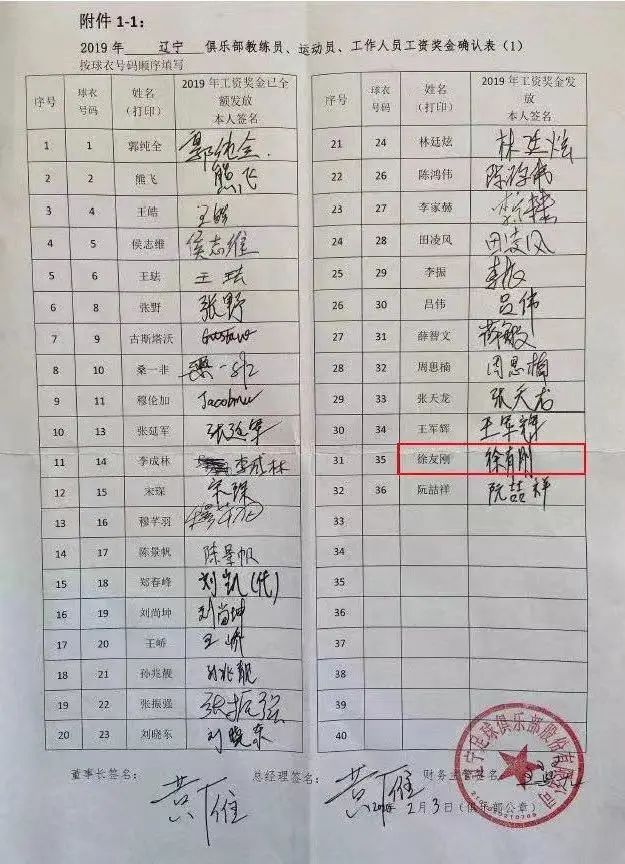 附件 1-1:
2019 年 辽宁 俱乐部教练员、运动员、工作人员工资奖金确认表（1）
按球衣号码顺序填写
序号 球衣号码 姓名（打印） 2019 年工资奖金已全额发放 本人签名
1 1 郭纯全 郭纯全
2 2 熊飞 熊飞
3 4 王皓 王皓
4 5 侯志维 侯志维
5 6 王珐 王珐
6 8 张野 张野
7 9 古斯塔沃 Gustavo
8 10 桑一非 桑一非
9 11 穆伦加 Jacobmu
10 13 张延军 张延军
11 14 李成林 李成林
12 15 宋琛 宋琛
13 16 穆芊羽
14 17 陈景帆 陈景帆
15 18 郑春峰 刘凯(代)
16 19 刘尚坤 刘尚坤
17 20 王峤 王峤
18 21 孙兆靓 孙兆靓
19 22 张振强 张振强
20 23 刘晓东 刘晓东
序号 球衣号码 姓名（打印） 2019 年工资奖金发放 本人签名
21 24 林廷炫 林廷炫
22 26 陈鸿伟
23 27 李家懿
24 28 田凌风 田凌风
25 29 李振 李振
26 30 吕伟 吕伟
27 31 薛智文
28 32 周思楠 周思楠
29 33 张天龙 张天龙
30 34 王军辉 王军辉
31 35 徐友刚 徐有刚
32 36 阮喆祥 阮喆祥
33
34
35
36
37
38
39
40
董事长签名： 总经理签名： 财务主管签名：
2月3日（俱乐部公章）
辽宁足球俱乐部股份有限公司